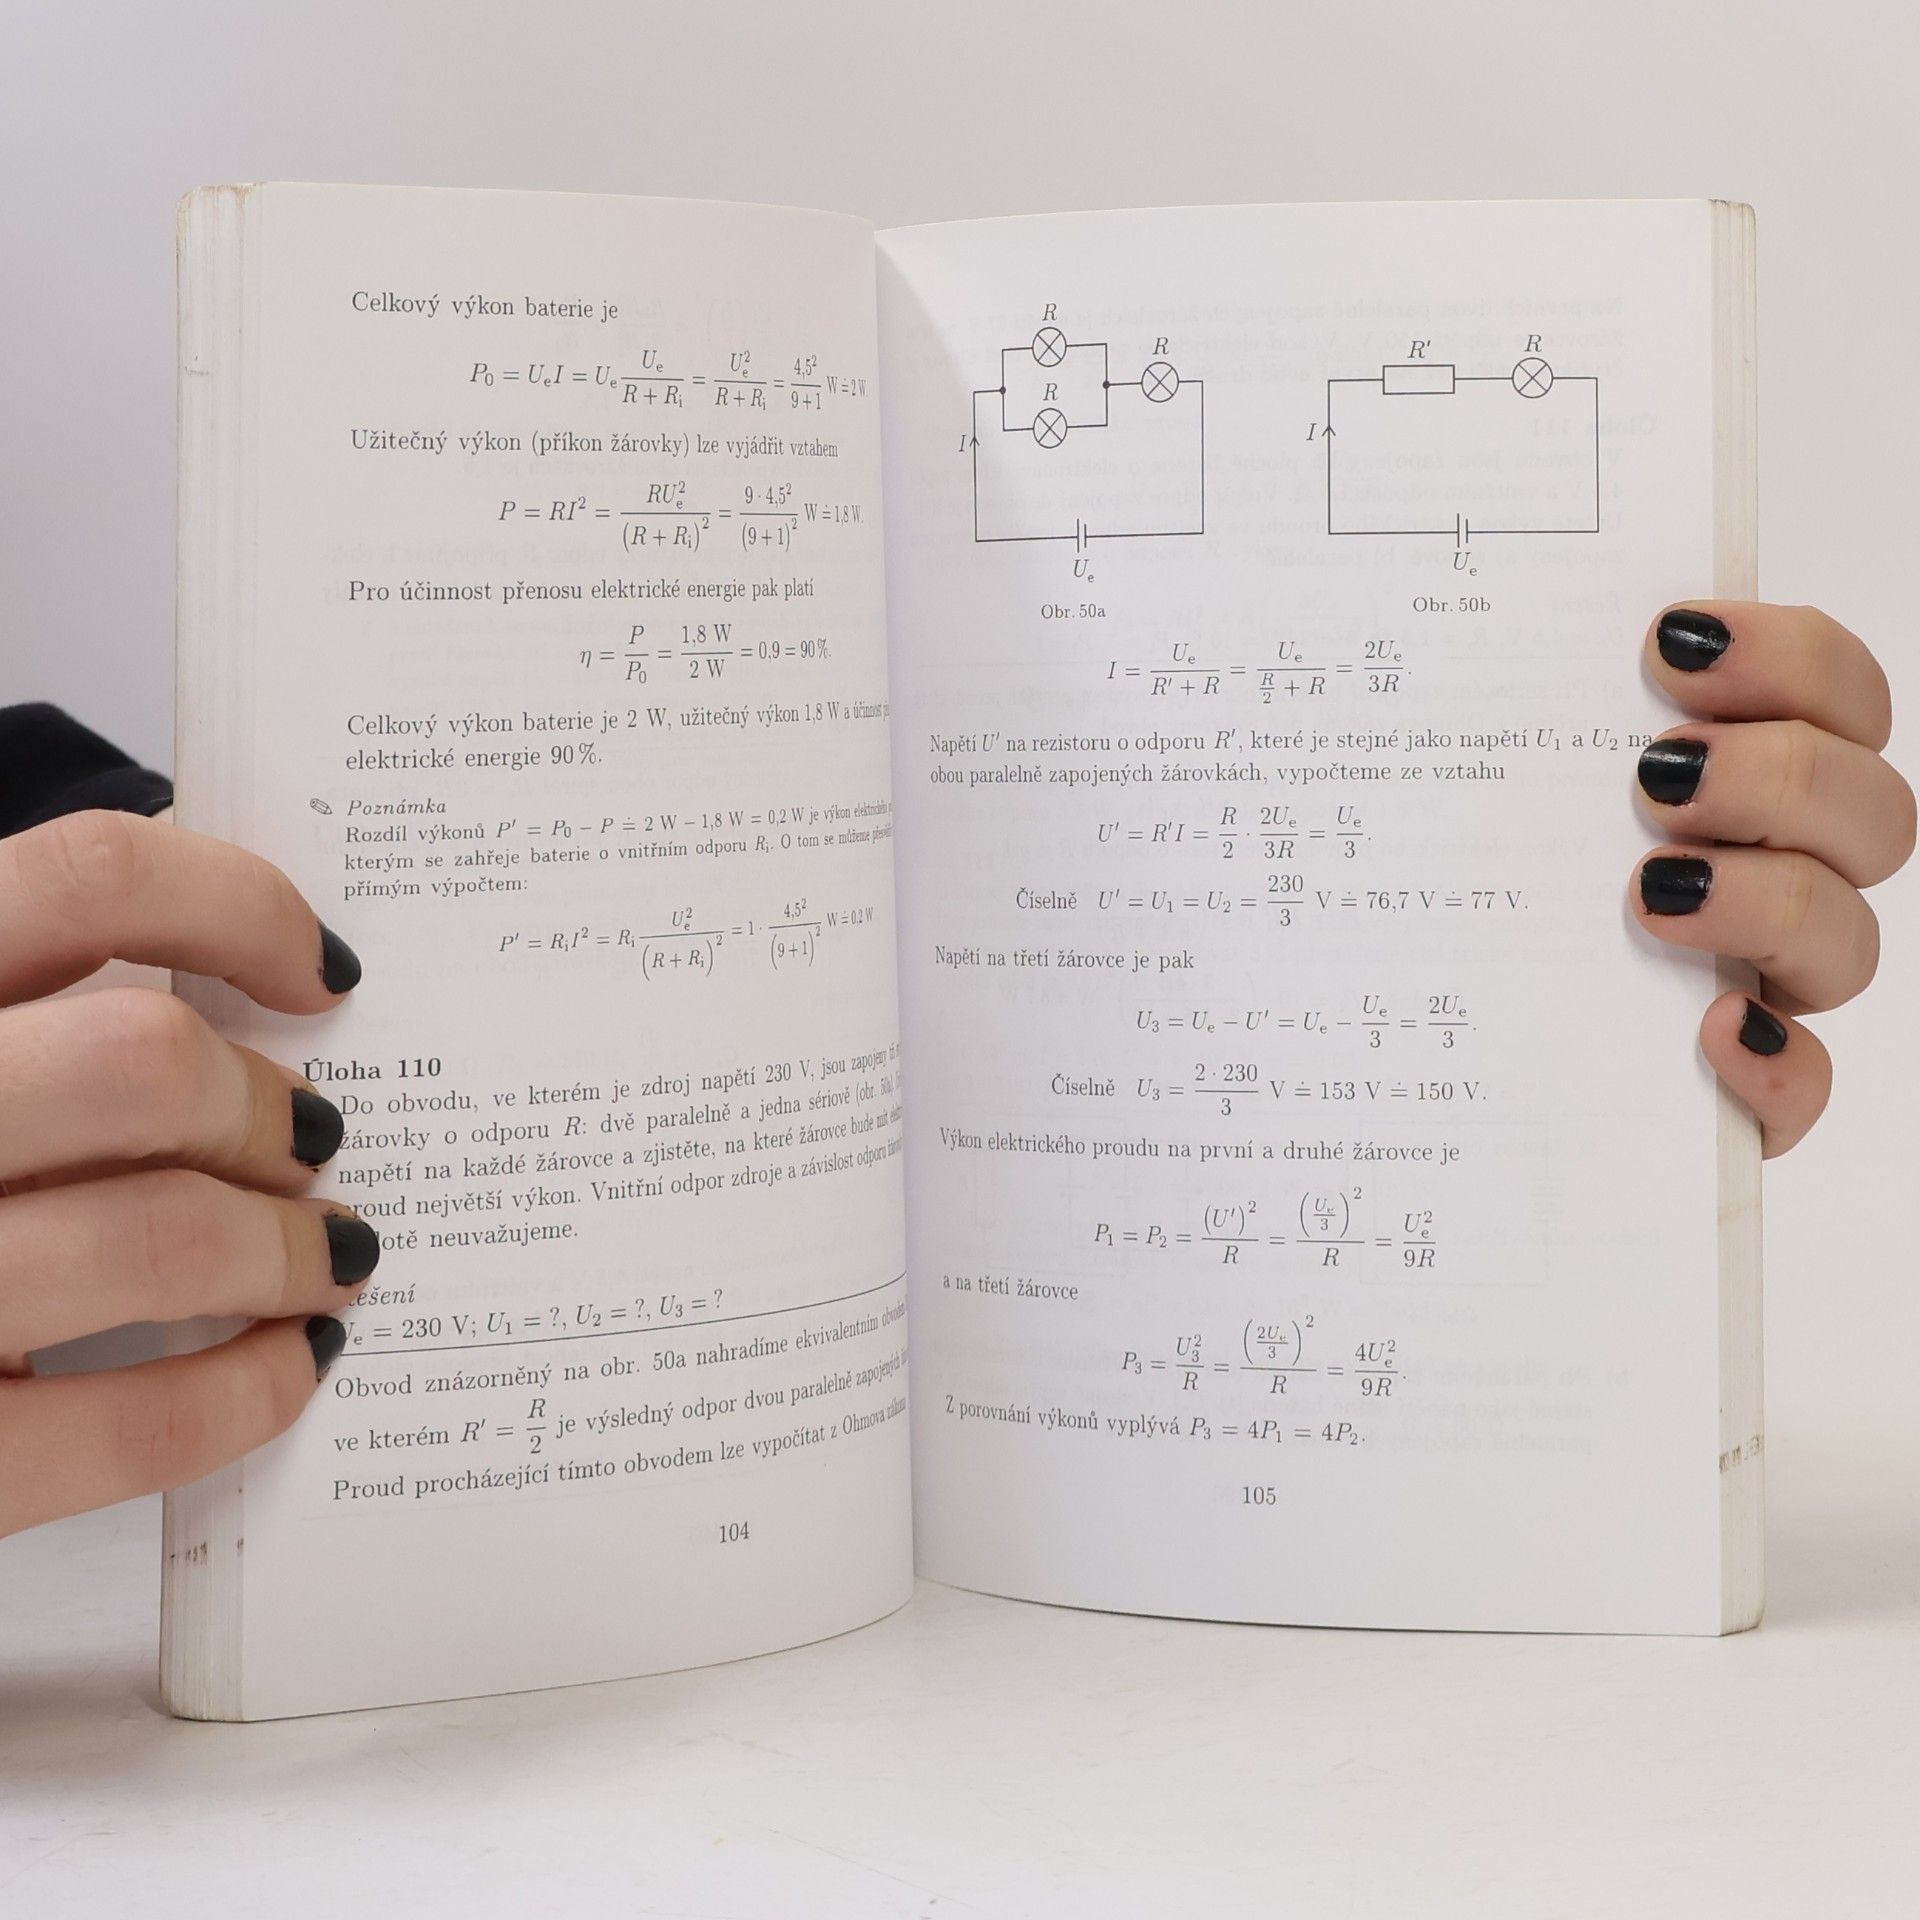 Celkový výkon baterie je
P₀ = UₑI = Uₑ Uₑ/(R + Rᵢ) = Uₑ²/(R + Rᵢ) = 4,5²/(9+1) W ≐ 2 W.
Užitečný výkon (příkon žárovky) lze vyjádřit vztahem
P = RI² = RUₑ²/(R + Rᵢ)² = 9·4,5²/(9+1)² W ≐ 1,8 W.
Pro účinnost přenosu elektrické energie pak platí
η = P/P₀ = 1,8 W/2 W = 0,9 = 90 %.
Celkový výkon baterie je 2 W, užitečný výkon 1,8 W a účinnost
elektrické energie 90 %.
Poznámka
Rozdíl výkonů P′ = P₀ − P ≐ 2 W − 1,8 W = 0,2 W je výkon elektrického
kterým se zahřeje baterie o vnitřním odporu Rᵢ. O tom se můžeme
přímým výpočtem:
P′ = RᵢI² = Rᵢ Uₑ²/(R + Rᵢ)² = 1 · 4,5²/(9+1)² W ≐ 0,2 W
Úloha 110
Do obvodu, ve kterém je zdroj napětí 230 V, jsou zapojeny tři
žárovky o odporu R: dvě paralelně a jedna sériově (obr. 50a).
napětí na každé žárovce a zjistěte, na které žárovce bude mít
proud největší výkon. Vnitřní odpor zdroje a závislost odporu
neuvažujeme.
Řešení
Uₑ = 230 V; U₁ = ?, U₂ = ?, U₃ = ?
Obvod znázorněný na obr. 50a nahradíme ekvivalentním obvodem
ve kterém R′ = R/2 je výsledný odpor dvou paralelně zapojených
Proud procházející tímto obvodem lze vypočítat z Ohmova zákona
104
R
R
R
I
Uₑ
Obr. 50a
R′
R
I
Uₑ
Obr. 50b
I = Uₑ/(R′ + R) = Uₑ/(R/2 + R) = 2Uₑ/3R.
Napětí U′ na rezistoru o odporu R′, které je stejné jako napětí U₁ a U₂ na
obou paralelně zapojených žárovkách, vypočteme ze vztahu
U′ = R′I = R/2 · 2Uₑ/3R = Uₑ/3.
Číselně U′ = U₁ = U₂ = 230/3 V ≐ 76,7 V ≐ 77 V.
Napětí na třetí žárovce je pak
U₃ = Uₑ − U′ = Uₑ − Uₑ/3 = 2Uₑ/3.
Číselně U₃ = 2 · 230/3 V ≐ 153 V ≐ 150 V.
Výkon elektrického proudu na první a druhé žárovce je
P₁ = P₂ = (U′)²/R = (Uₑ/3)²/R = Uₑ²/9R
a na třetí žárovce
P₃ = U₃²/R = (2Uₑ/3)²/R = 4Uₑ²/9R.
Z porovnání výkonů vyplývá P₃ = 4P₁ = 4P₂.
105